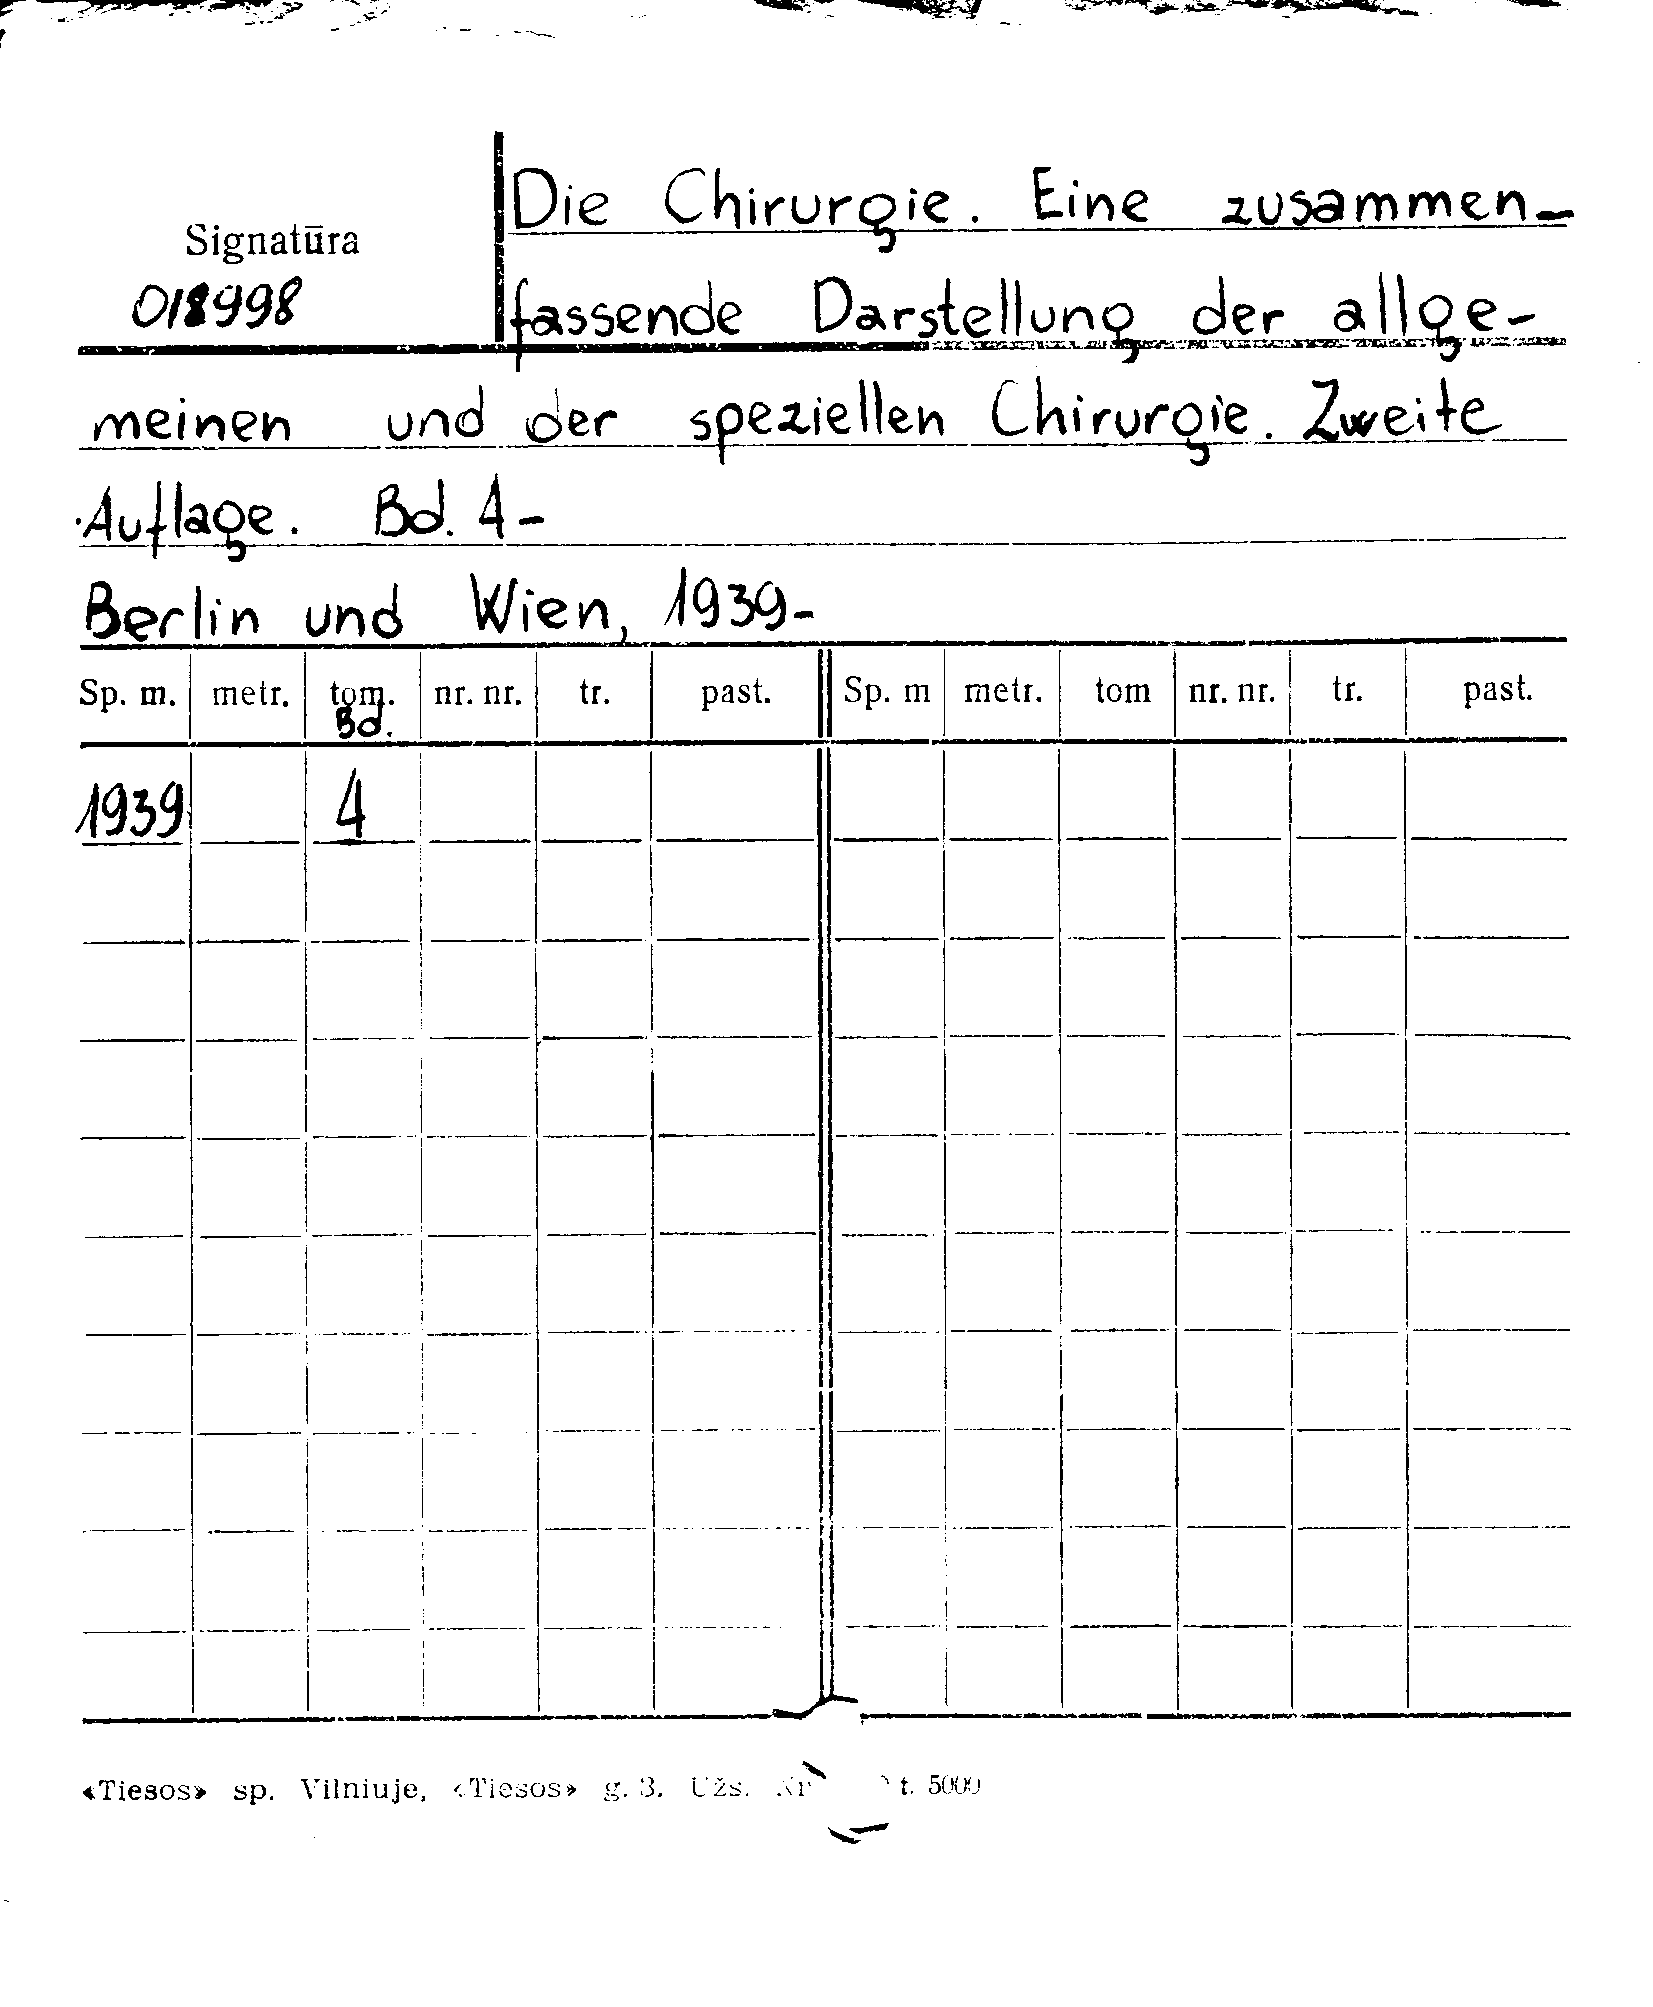 Die Chirurgie. Eine zusammen-
Signatūra
018998
fassende Darstellung der allge-
meinen und der speziellen Chirurgie. Zweite
Auflage. Bd. 4-
Berlin und Wien, 1939-
Sp. m. metr. tom. nr. nr. tr. past. Sp. m metr. tom nr. nr. tr. past.
Bd.
1939 4
«Tiesos» sp. Vilniuje, «Tiesos» g. 3. Užs. t. 5000